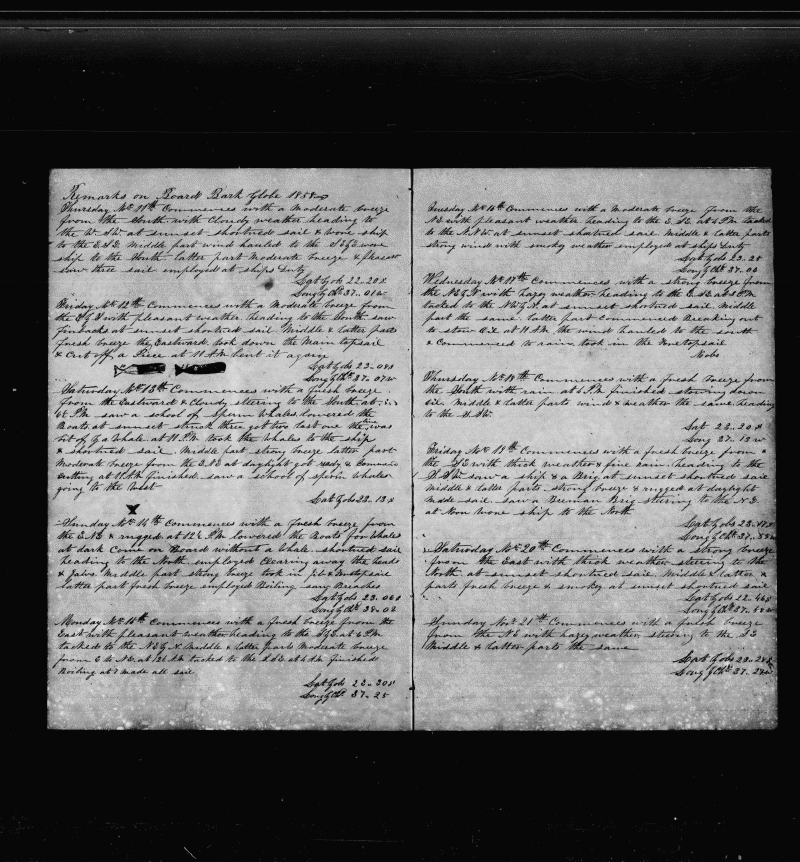 Remarks on Board Bark Globe 1858
Thursday Nov 11th Commences with a moderate breeze
from the South with Cloudy weather heading to
the W.S.W at sunset shortned sail & wore ship
to the E.S.E. Middle part wind hauled to the wore
ship to the South latter part moderate breeze & pleasent
saw three sail employed at ships duty
Lat by ob 22-20 s
Long by Chr 37-01 w
Friday Nov 12th Commences with a moderate breeze from
the with pleasent weather heading to the South saw
finbacks at sunset shortned sail Middle & latter parts
fresh breeze the Eastward. took down the Main topsail
& Cut off a Piece at 11 A.M bent it again
Lat by ob 23-08 s
Long by Chr 37-07 w
Saturday Nov 13th Commences with a fresh breeze
from the Eastward & Cloudy steering to the South at
P.M saw a school of Sperm Whales lowered the
Boats at sunset struck three got two last one the iron
bit of by a Whale at 11 P.M took the Whales to the ship
& shortned sail. Middle part strong breeze latter part
Moderate breeze from the at daylight got ready & Commenced
cutting at 11 A.M finished. saw a school of sperm whales
going to the West
Lat by ob 22-13 s
Sunday Nov 14th Commences with a fresh breeze from
the E.N.E & rugged at 12½ P.M lowered the Boats for Whales
at dark Come on Board without a Whale. shortned sail
heading to the North. employed Clearing away the heads
& Jaws. Middle part strong breeze took in jib & Foretopsail
latter part fresh breeze employed Boiling. saw Breaches
Lat by ob 23-06
Long by Chr 38-02
Monday Nov 15th Commences with a fresh breeze from the
East with pleasent weather heading to the at 6 P.M
tacked to the Middle & latter parts Moderate breeze
from E to N.E. at 12½ A.M tacked to the at 4 A.M finished
Boiling at 7 made all sail
Lat by ob 22-30 s
Long by Chr 37-25
Tuesday Nov 16th Commences with a Moderate breeze from the
N.E with pleasent weather heading to the at P.M tacked
to the at sunset shortned sail Middle & latter parts
strong wind with smoky weather employed at ships duty
Lat by ob 23-25
Long by Chr 37-00
Wednesday Nov 17th Commences with a strong breeze from
the with hazey weather heading to the at P.M
tacked to the at sunset shortned sail Middle
part the same. latter part Commenced Breaking out
to stow Oil at 11 A.M the wind hauled to the South
& Commenced to rain took in the Foretopsail
No obs
Thursday Nov 18th Commences with a fresh breeze from
the South with rain at P.M finished stowing down
Oil. Middle & latter parts wind & weather the same heading
to the
Lat 22-20 s
Long 37-13 w
Friday Nov 19th Commences with a fresh breeze from
the with thick weather & fine rain heading to the
saw a ship & a Brig at sunset shortned sail
Middle & latter parts strong breeze & rugged at daylight
made sail. saw a Breman Brig steering to the N.E.
at Noon Wore ship to the North
Lat by ob 23
Long by Chr 37
Saturday Nov 20th Commences with a strong breeze
from the East with thick weather steering to the
North. at sunset shortned sail Middle & latter
parts fresh breeze & smoky at sunset shortned sail
Lat by ob 22-46 s
Long by Chr 37
Sunday Nov 21st Commences with a fresh breeze
from the N.E with hazey weather steering to the
Middle & latter parts the same
Lat by ob 23-24 s
Long by Chr 37